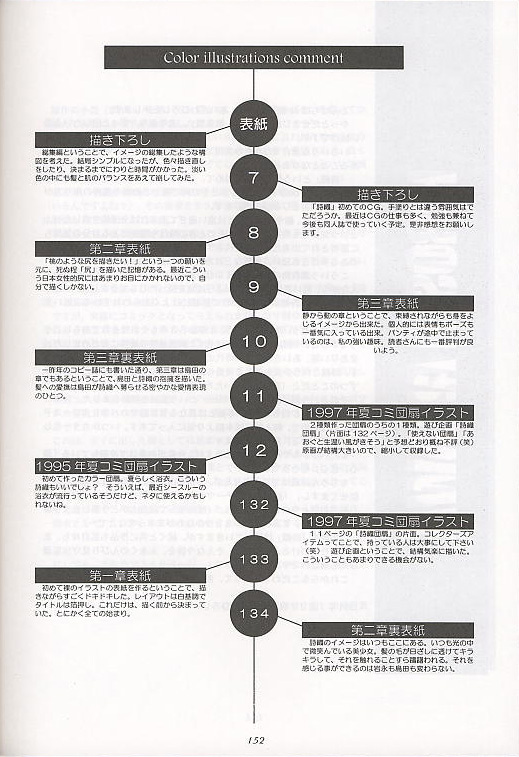 Color illustrations comment
表紙
描き下ろし
総集編ということで、イメージの総集したような構
図を考えた。結局シンプルになったが、色々描き直し
をしたり、決まるまでにわりと時間がかかった。淡い
色の中にも髪と肌のバランスをあえて崩してみた。
7
描き下ろし
「詩織」初めてのCG。手塗りとは違う雰囲気はで
ただろうか。最近はCGの仕事も多く、勉強も兼ねて
今後も同人誌で使っていく予定。是非感想をお願いし
ます。
8
第二章表紙
「桃のような尻を描きたい！」という一つの願いを
元に、死ぬ程「尻」を描いた記憶がある。最近こうい
う日本女性的尻にはあまりお目にかかれないので、自
分で描くしかない。
9
第三章表紙
静から動の章ということで、束縛されながらも身をよ
じるイメージから出来た。個人的には表情もポーズも
一番気に入っている出来。パンティが途中で止まって
いるのは、私の強い趣味。読者さんにも一番評判が良
いよう。
10
第三章裏表紙
一昨年のコピー誌にも書いた通り、第三章は島田の
章でもあるということで、島田と詩織の抱擁を描いた。
髪への愛撫は島田が詩織へ募らせる密やかな愛情表現
のひとつ。
11
1997年夏コミ団扇イラスト
２種類作った団扇のうちの１種類。遊び企画「詩織
団扇」（片面は132ページ）。「使えない団扇」「あ
おぐと生温い風がきそう」と予想どおり概ね不評（笑）
原画が結構大きいので、縮小して収録した。
12
1995年夏コミ団扇イラスト
初めて作ったカラー団扇。夏らしく浴衣。こういう
詩織もいいでしょ？　そういえば、最近シースルーの
浴衣が流行っているそうだけど、ネタに使えるかもし
れないね。
132
1997年夏コミ団扇イラスト
１１ページの「詩織団扇」の片面。コレクターズア
イテムってことで、持っている人は大事にして下さい
（笑）　遊び企画ということで、結構気楽に描いた。
こういうこともあまりできる機会がない。
133
第一章表紙
初めて裸のイラストの表紙を作るということで、描
きながらすごくドキドキした。レイアウトは白基調で
タイトルは箔押し。これだけは、描く前から決まって
いた。とにかく全ての始まり。
134
第二章裏表紙
詩織のイメージはいつもここにある。いつも光の中
で微笑んでいる美少女。髪の毛が日ざしに透けてキラ
キラして、それを触れることすら躊躇われる。それを
感じる事ができるのは岩永も島田も変わらない。
152